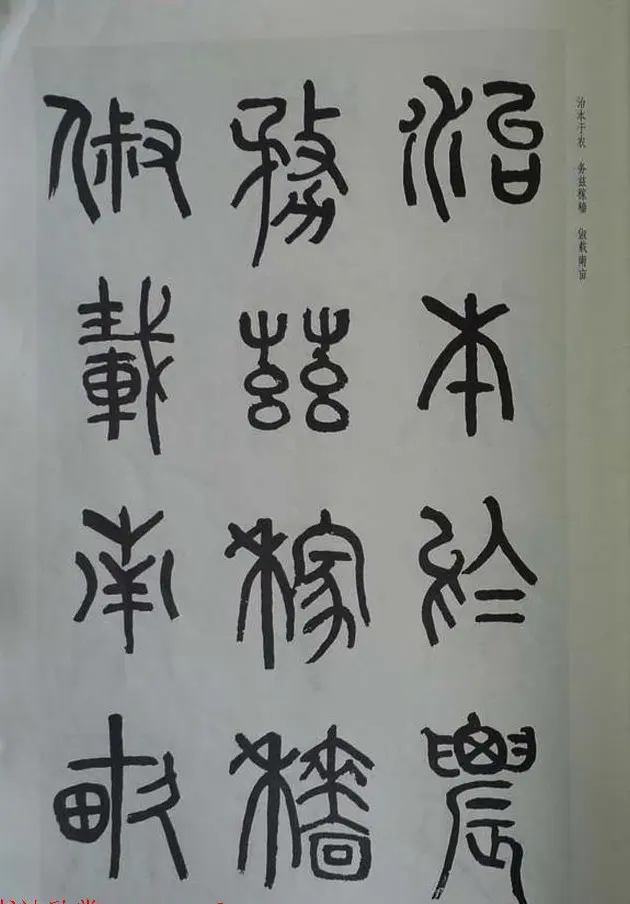 治本於農
務茲稼穡
俶載南畝
治本于农 务兹稼穑 俶载南亩